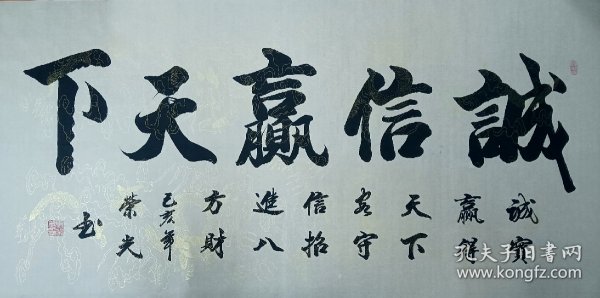 誠信贏天下
誠實
贏得
天下
客守
信招
進八
方財
己亥年
榮光
书
孔夫子旧书网
www.kongfz.com